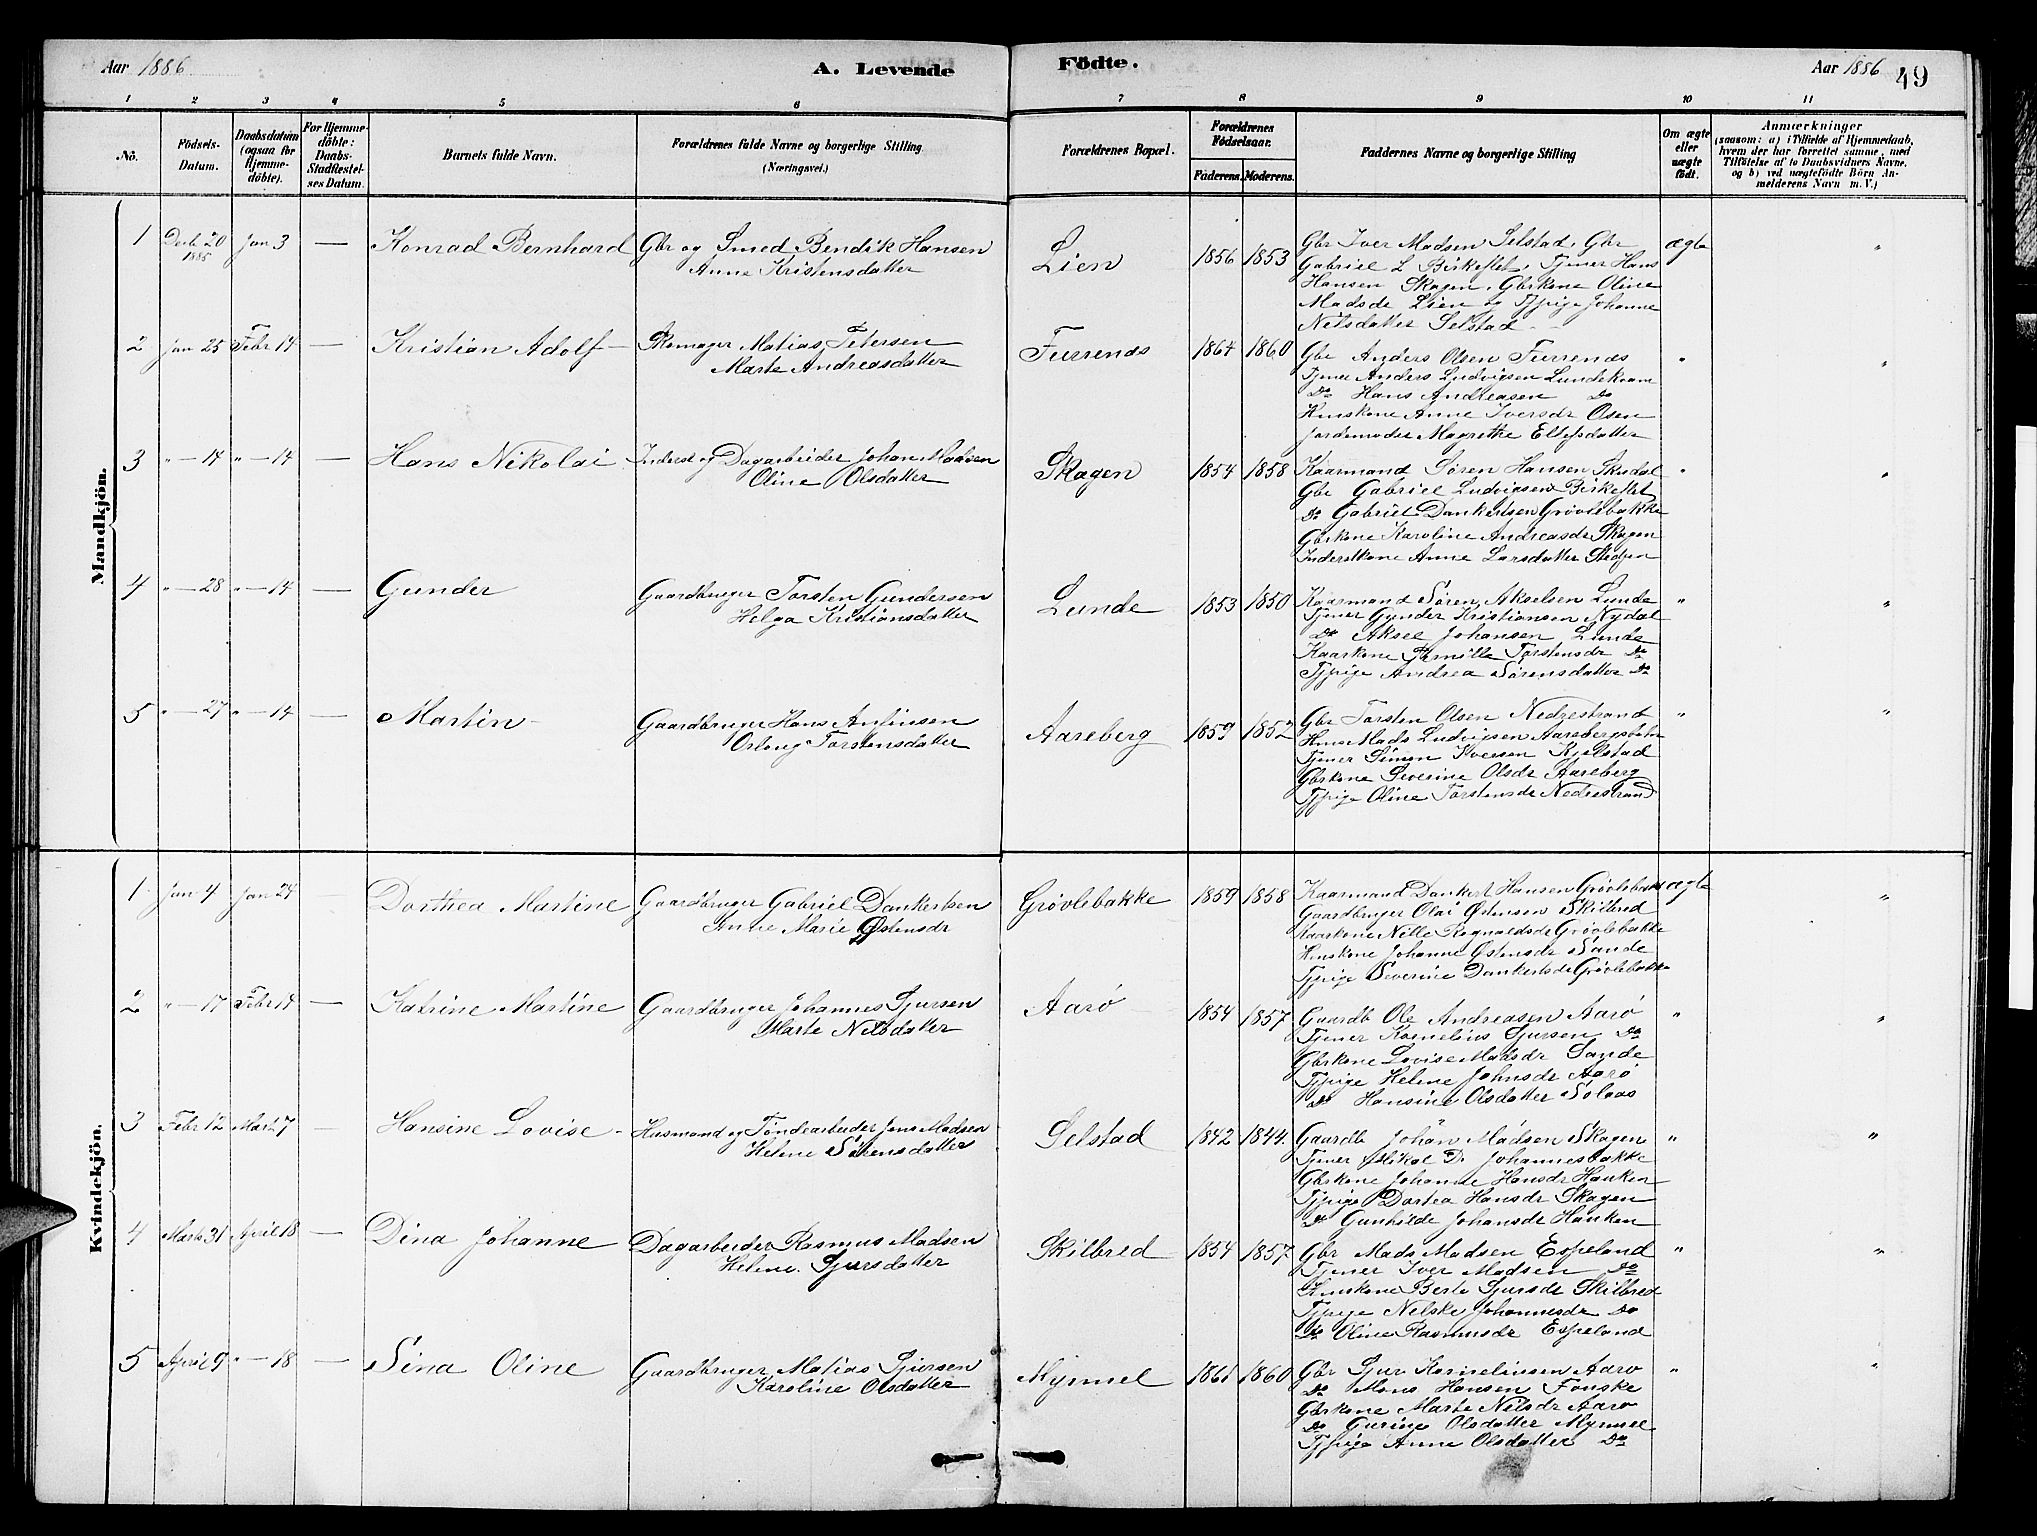 Aar 1886 A. Levende Födte. Aar 1886 49
1 2 3 4 5 6 7 8 9 10 11
No. Födsels-Datum. Daabsdatum (ogsaa for Hjemme-döbte). For Hjemme-döbte: Daabs-Stadfæstel-ses Datum. Barnets fulde Navn. Forældrenes fulde Navne og borgerlige Stilling (Næringsvei.) Forældrenes Bopæl. Forældrenes Födselsaar. Faderens. Moderens. Faddernes Navne og borgerlige Stilling Om ægte eller uægte födt. Anmærkninger (saasom: a) i Tilfælde af Hjemmedaab, hvem der har forrettet samme, med Tilföielse af to Daabsvidners Navne, og b) ved uægtefödte Börn An-melderens Navn m. V.)
Mandkjön.
1 Decb 20 1885 Jan 3 — Konrad Bernhard Gbr og Smed Bendik Hansen
Anne Kristensdatter
Lien 1856 1853 Gbr Iver Madsen Selstad, Gbr ægte "
Gabriel L Birkeflet, Tjener Hans
Hansen Skagen, Gbrkone Oline
Madsde Lien og Tjpige Johanne
Nilsdatter Selstad
2 Jan 25 Febr 14 — Kristian Adolf Skomager Matias Petersen
Marte Andreasdatter
Furrenes 1864 1860 Gbr Anders Olsen Furrenes " "
Tjener Anders Ludvigsen Lundekvam
Do Hans Andreasen Do
Hmskone Anne Iversdr Osen
Jordemoder Magrethe Ellefsdatter
3 " — 14 " — 14 — Hans Nikolai Inderst og Dagarbeider Johan Madsen
Oline Olsdatter
Skagen 1854 1858 Kaarmand Søren Hansen Skudal " "
Gbr Gabriel Ludvigsen Birkeflet
Do Gabriel Dankertsen Grövlebakke
Gbrkone Karoline Andreasdr Skagen
Inderstkone Anne Larsdatter
4 " — 28 " — 14 — Gunder Gaardbruger Torsten Gundersen
Helga Kristiansdatter
Lunde 1853 1850 Kaarmand Sören Akselsen Lunde " "
Tjener Gunder Kristiansen Nydal
Do Aksel Johansen Lunde
Kaarkone Torstensdr Do
Tjpige Andrea Sörensdatter Do
5 " — 27 " — 14 — Martin Gaardbruger Hans Antinsen
Osteng Torstensdatter
Aareberg 1859 1852 Gbr Torsten Olsen Nedrestrand " "
Hms Mads Ludvigsen
Tjener Simon Iversen Kjelstad
Gbrkone Severine Olsdr Aareberg
Tjpige Oline Torstensdr Nedrestrand
Kvindekjön.
1 Jan 4 Jan 24 — Dorthea Martine Gaardbruger Gabriel Dankertsen
Anne Marie Østensdr
Grövlebakke 1859 1858 Kaarmand Dankert Hansen Grövlebakke ægte "
Gaardbruger Olai Østensen Skilbred
Kaarkone Nille Rognaldsdr Grövlebakke
Hmskone Johanne Østensdr Sande
Tjpige Severine Dankertsdr Grövlebakke
2 " — 17 Febr 14 — Katrine Martine Gaardbruger Johannes Sjursen
Marte Nilsdatter
Aarö 1854 1857 Gaardb Ole Andreasen Aarö " "
Tjener Kornelius Sjursen Do
Gbrkone Lovise Madsdr Sande
Tjpige Helene Johnsdr Aarö
Do Hansine Olsdatter Solaas
3 Febr 12 Marts 7 — Hansine Lovise Husmand og Töndearbeider Jens Madsen
Helene Sörensdatter
Selstad 1842 1844. Gaardb Johan Madsen Skagen " "
Tjener Mikal D. Johannesbakke
Gbrkone Johanne Hansdr Hauken
Tjpige Dortea Hansdr Skagen
Do Gunhilde Johansdr Hauken
4 Marts 31 April 18 — Dina Johanne Dagarbeider Rasmus Madsen
Helene Sjursdatter
Skilbred 1854 1857 Gbr Mads Madsen Espeland " "
Tjener Iver Madsen Do
Hmskone Berte Sjursdr Skilbred
Tjpige Nilske Johannesdr Do
Do Oline Rasmusdr Espeland
5 April 9 " — 18 — Sina Oline Gaardbruger Matias Sjursen
Karoline Olsdatter
Myrmel 1861 1860 Gbr Sjur Korneliussen Aarö " "
Do Mons Hansen Fonske
Gbrkone Marte Nilsdr Aarö
Do Gurine Olsdatter Myrmel
Tjpige Anne Olsdatter Do